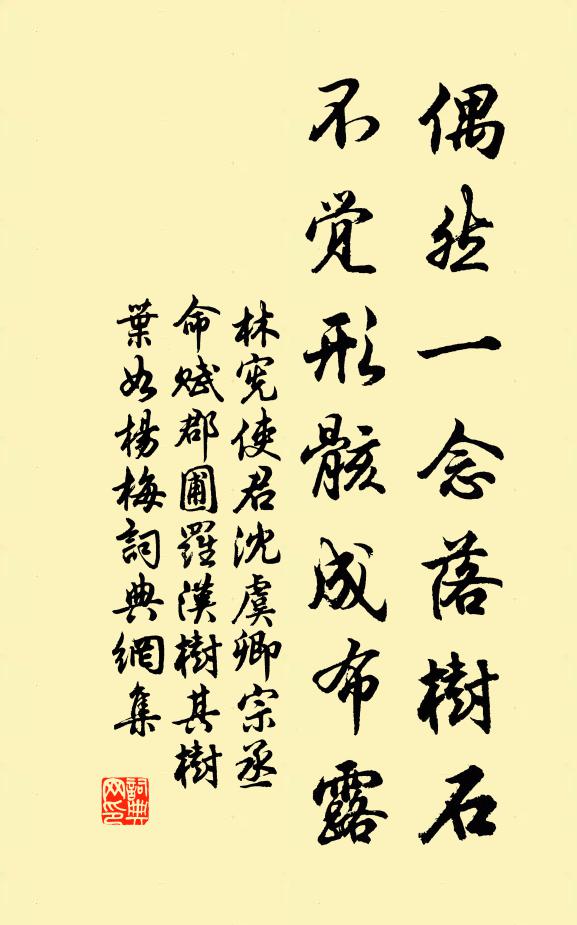 偶然一念落樹石
不覚形骸成布露
林憲使君沈虞卿宗丞
命赋郡圃羅漢樹其樹
葉如楊梅詞典網集
詞典网印